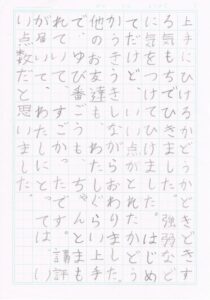 上手にひけるかどうかどきどきす
る気もちでひきました。強弱など
に気をつけてひけました。はじめ
てだけど、いい点がとれたかどう
しながらおわりました。
他のお友達もわたしぐらい上手
で、ゆび番ごうも
れていて、すごかったです。講評
わたしにとってはい
い点数だと思いました。